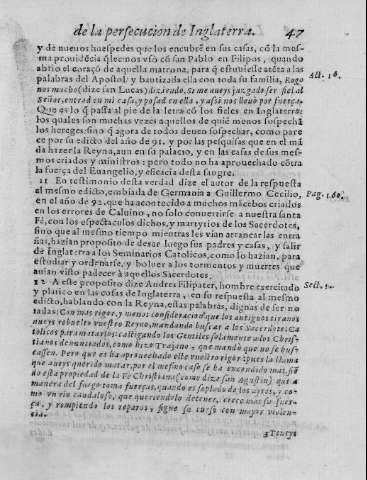 de la persecucion de Inglaterra. 47
y de nueuos huespedes que los encubrē en sus casas, cō la mes-
ma prouidēcia q̄ lec nos vsò con san Pablo en Filipos, quando
abrio el coraçō de aquella matrona, para q̄ estuuiesse atēta a las
palabras del Apostol, y bautizada ella con toda su familia, Rogo Act. 16.
nos mucho (dize san Lucas) diziendo, Si me aueys juzgado ser fiel al
Señor, entrad en mi casa, y posad en ella, y assi nos lleuò por fuerça.
Que es lo q̄ passa al pie de la letra cō los fieles en Inglaterra:
los quales son muchas vezes aquellos de quiē menos sospechā
los hereges, sino q̄ agora de todos deuen sospechar, como pare
ce por su edicto del año de 91. y por las pesquisas que en el mā
da hizer la Reyna, aun en su palacio, y en las casas de sus mes-
mos criados y ministros: pero todo no ha aprouechado cōtra
la fuerça del Euangelio, y eficacia desta sangre.
11 En testimonio desta verdad dize el autor de la respuesta
al mesmo edicto, embiada de Germania a Guillermo Cecilio, Pag. 160.
en el año de 92. que ha acontecido a muchos mācebos criados
en los errores de Caluino, no solo conuertirse a nuestra santa
Fê, con los espectaculos dichos, y martyrios de los Sacerdotes,
sino que al mesmo tiempo mientras les vian arrancar las entra
ñas, hazian proposito de dexar luego sus padres y casas, y salir
de Inglaterra a los Seminarios Catolicos, como lo hazian, para
estudiar y ordenarse, y boluer a los tormentos y muertes que
auian visto padecer à aquellos Sacerdotes.
12 A este proposito dize Andres Filipater, hombre exercitado Sect. 5.
y platico en las cosas de Inglaterra, en su respuesta al mesmo
edicto, hablando con la Reyna, estas palabras, dignas de ser no
tadas: Con mas rigor, y menos consideracion que los antiguos tiranos
aueys rebuelto vuestro Reyno, mandando buscar a los Sacerdotes Ca-
tolicos para matarlos: castigando los Gentiles solamente a los Chris-
tianos denunciados, como dize Trajano, que mandò que no se bus-
cassen. Pero que es ha aprouechado este vuestro rigor? pues la llama
que aueys querido matar, por el mesmo caso se ha encendido mas, siē
do esta propiedad de la Fè Christiana (como dize san Agustin) que a
manera del fuego toma fuerças, quando es soplado de los ayres, y co-
mo vn rio caudaloso, que queriendolo detener, crece mas su fuer-
ça, y rompiendo los reparos, sigue su curso con mayor violen-
cia.